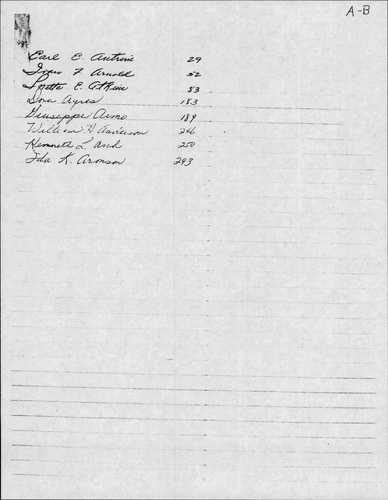 A-B
Earl E. Antrim 29
Ivan F Arnold 52
Loretta E. Atkins 83
Dora Ayres 183
Giuseppe Arno 189
William H Anderson 246
Kenneth L. Asch 250
Ida K. Aronson 293